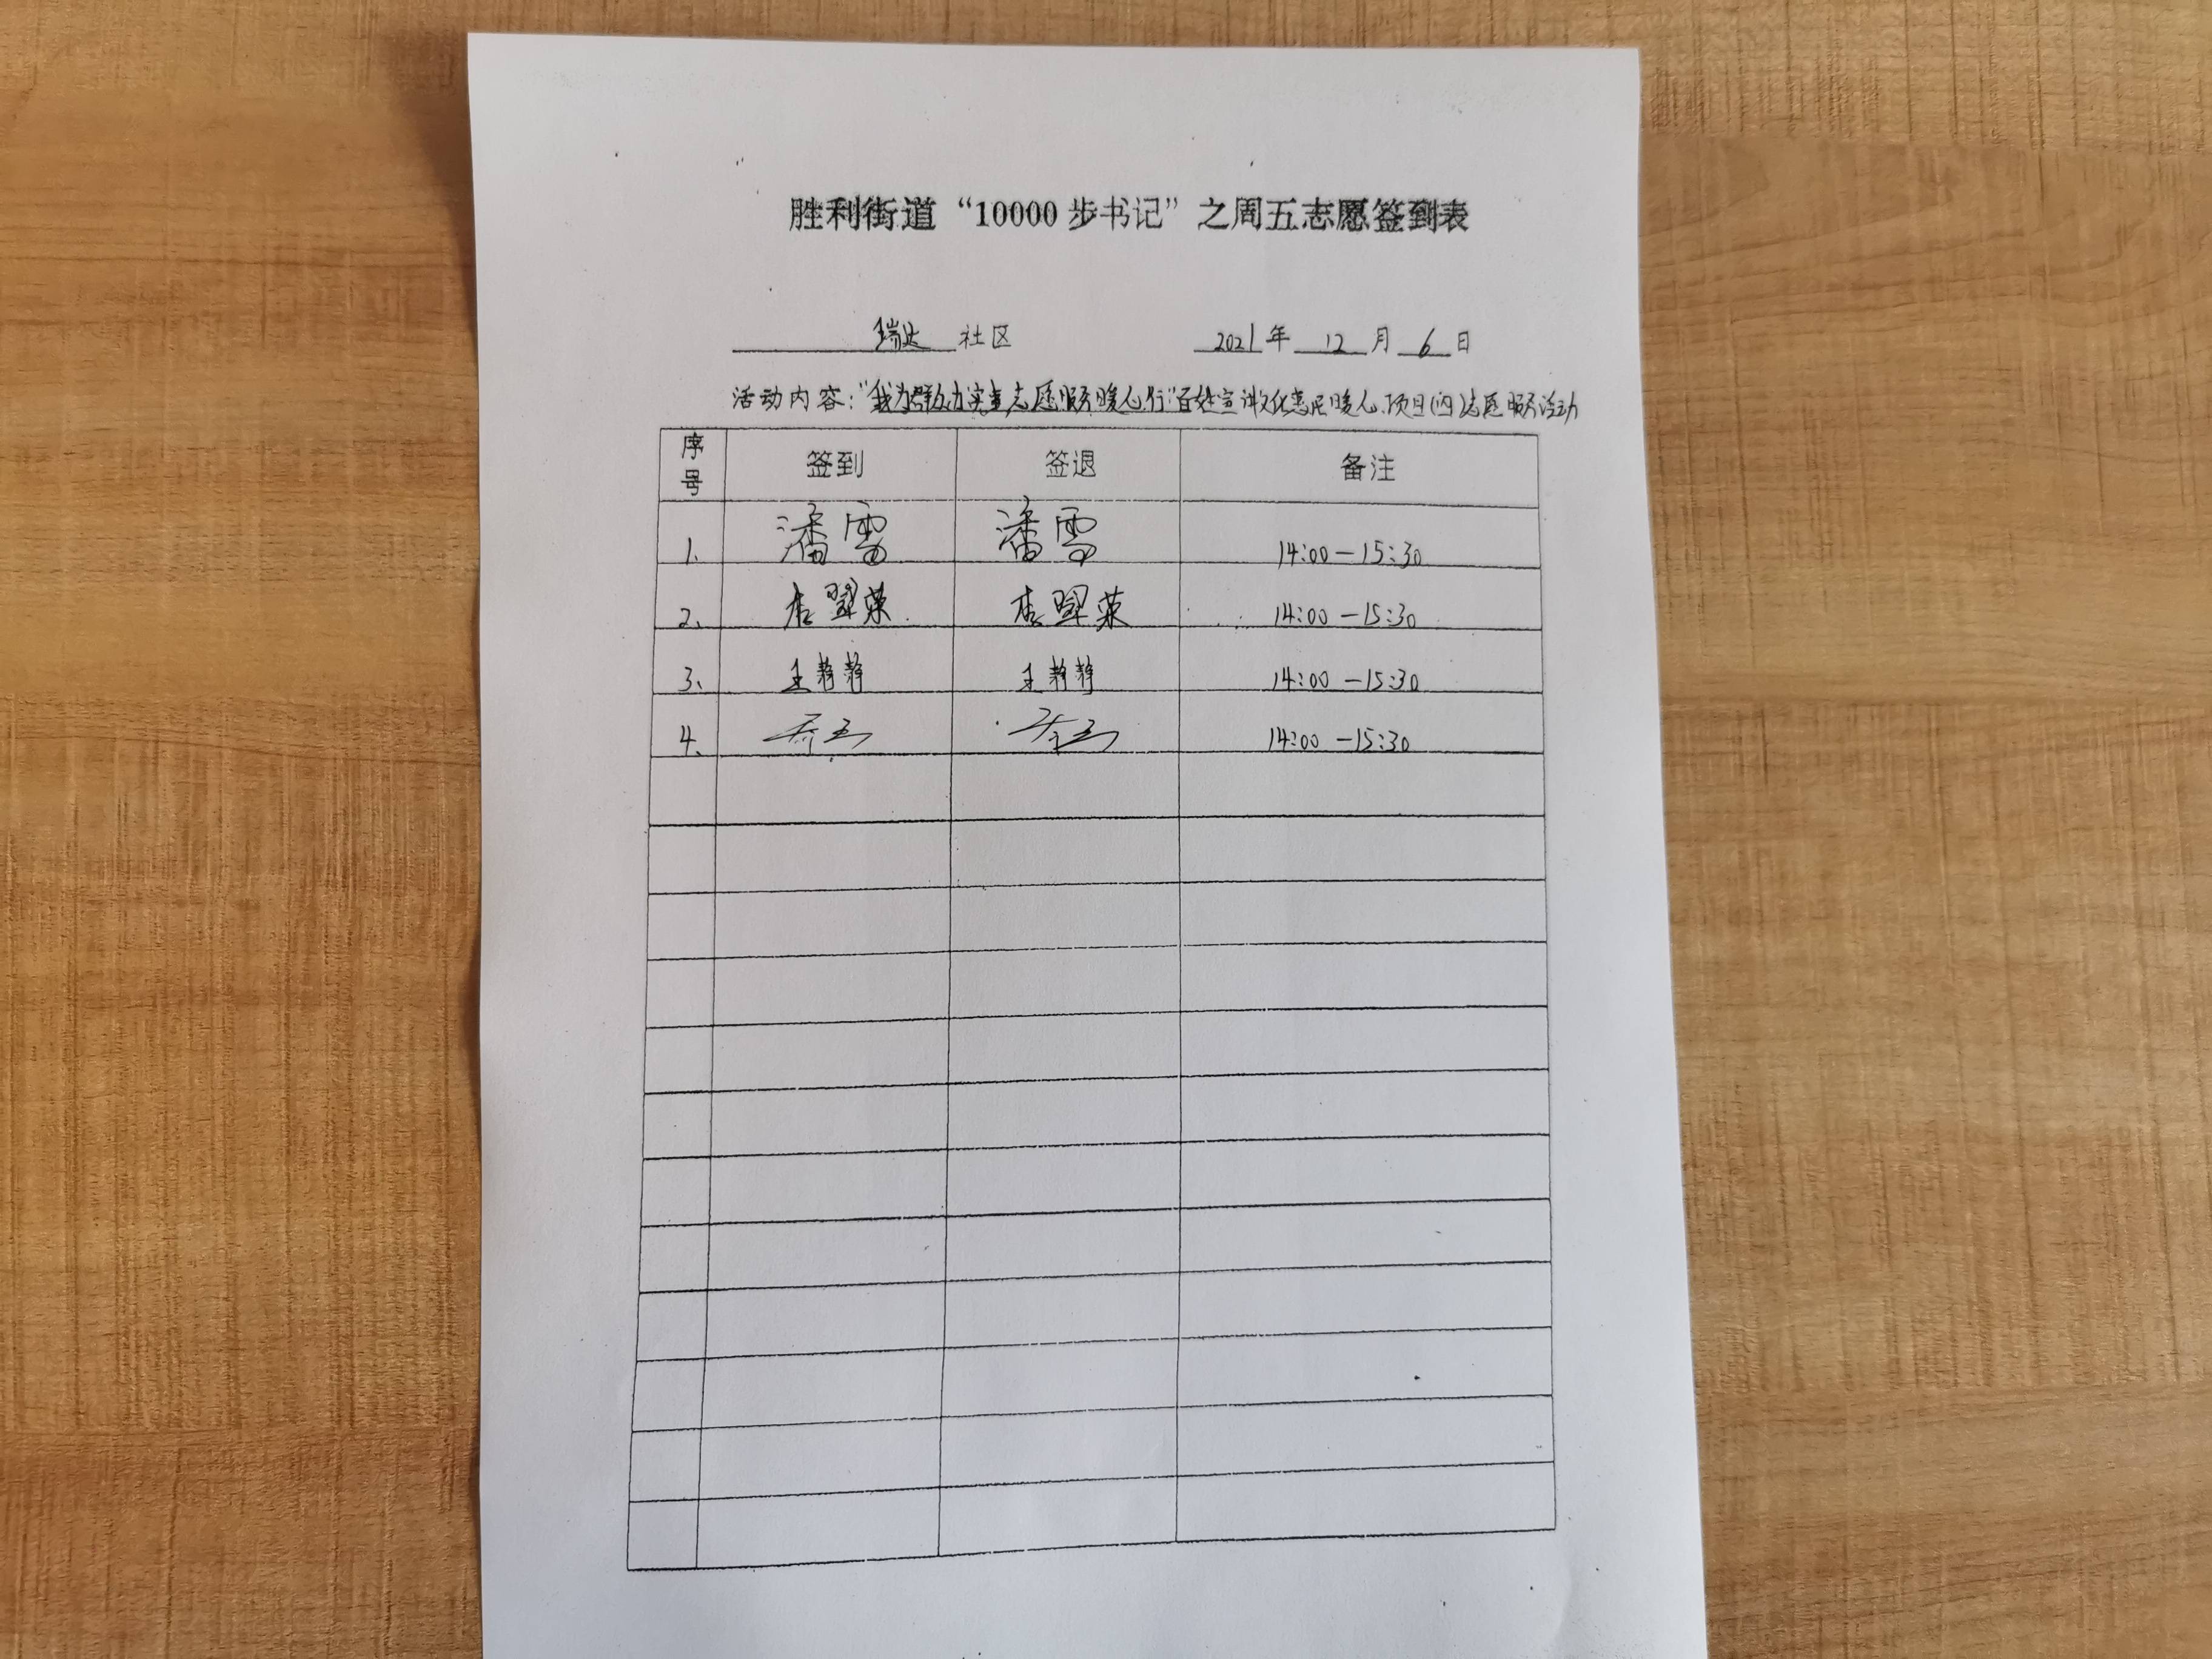 胜利街道“10000步书记”之周五志愿签到表
瑞达 社区 2021年 12 月 6 日
活动内容：“我为群众办实事志愿服务暖心行”百姓宣讲文化惠民暖人心项目(四)志愿服务活动
序号 签到 签退 备注
1. 潘雪 潘雪 14:00-15:30
2、 翠荣 翠荣 14:00-15:30
3、 王静静 王静静 14:00-15:30
4、 14:00-15:30